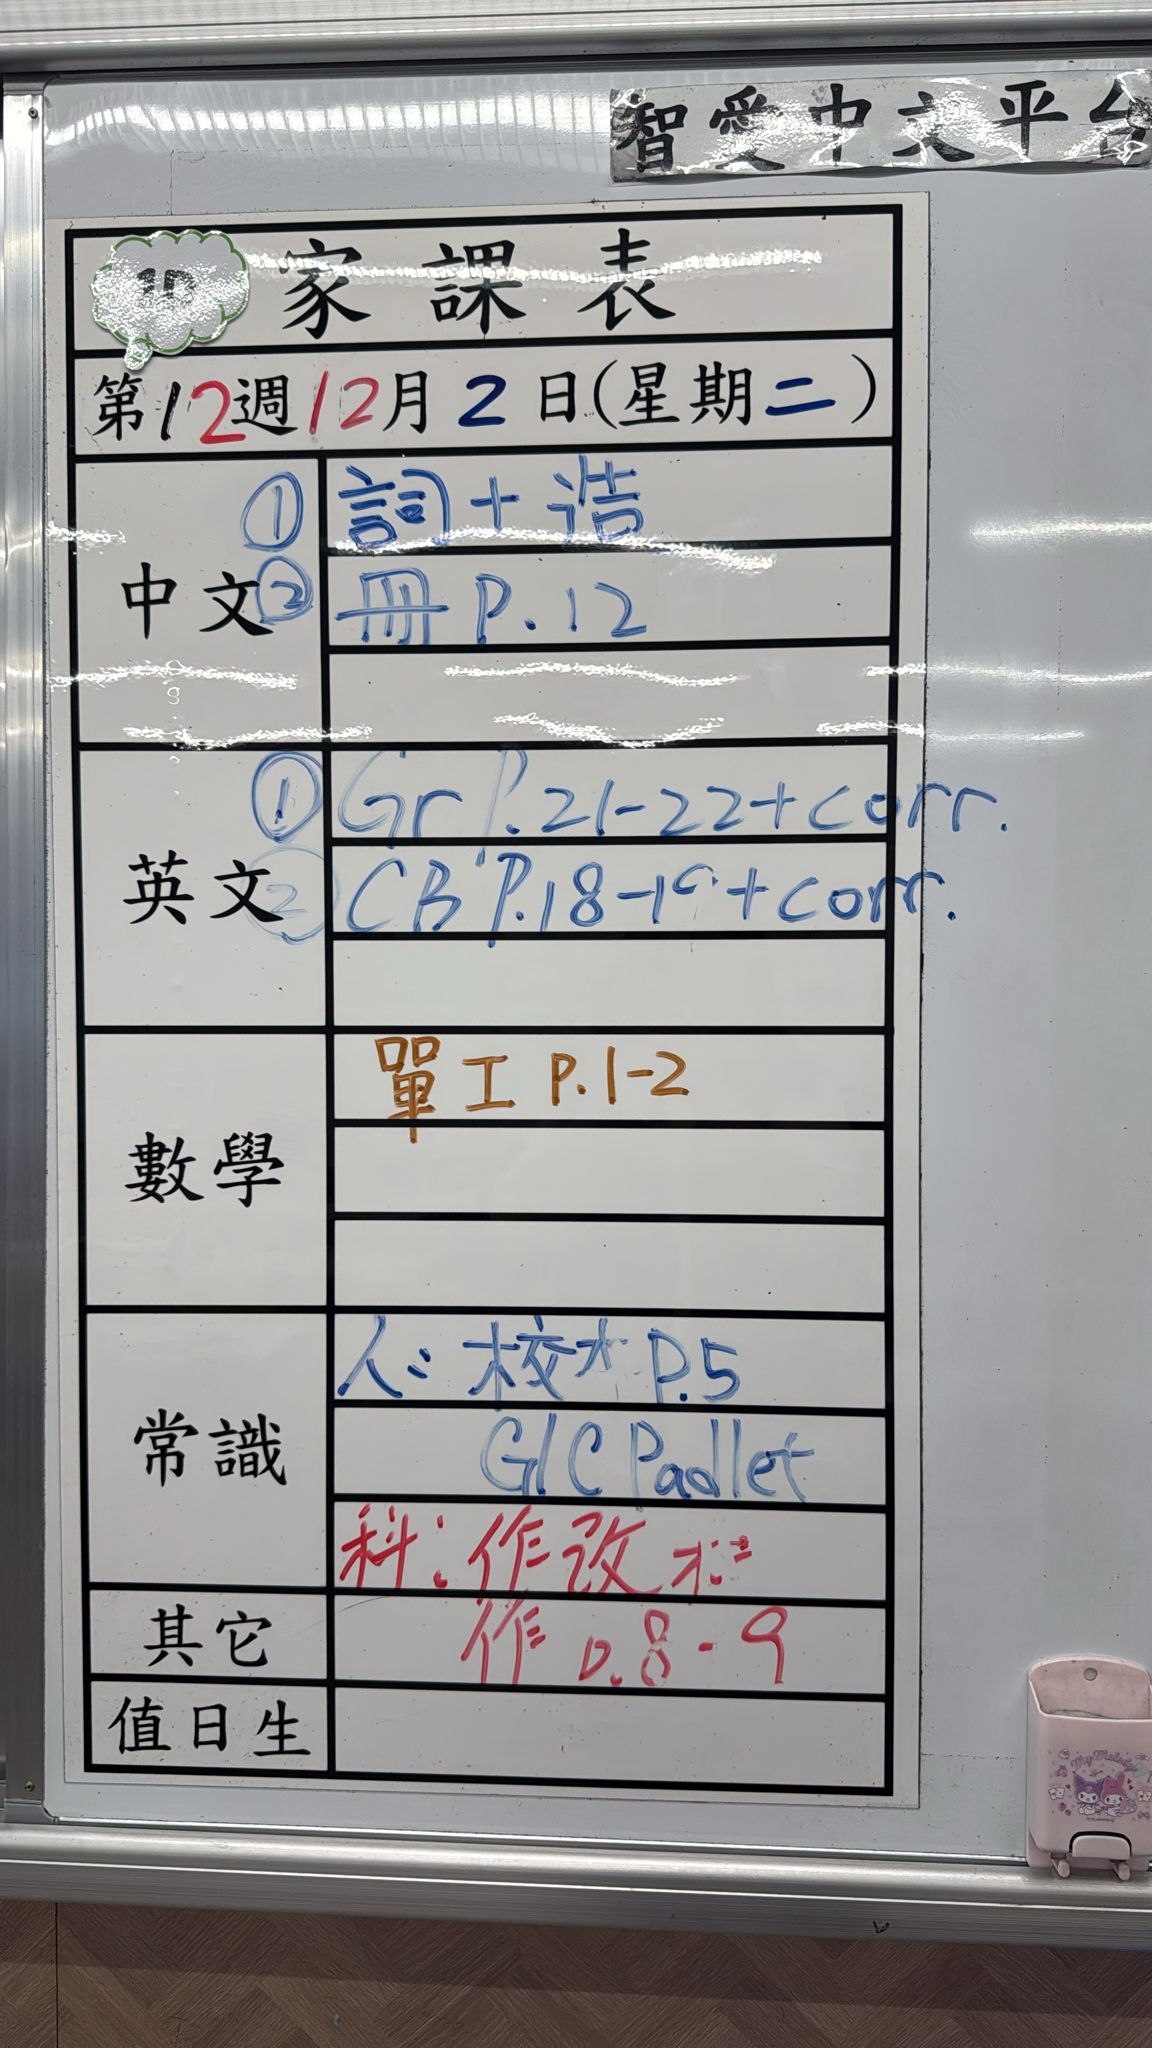 智愛中文平台
家課表
第12週12月2日(星期二)
中文
① 詞+造
② 冊 P.12
英文
① Gr P.21-22+corr.
② CB P.18-19+corr.
數學
單工 P.1-2
常識
人: 校 P.5
GIC Padlet
科: 作改
其它
作 p.8-9
值日生
My Melody